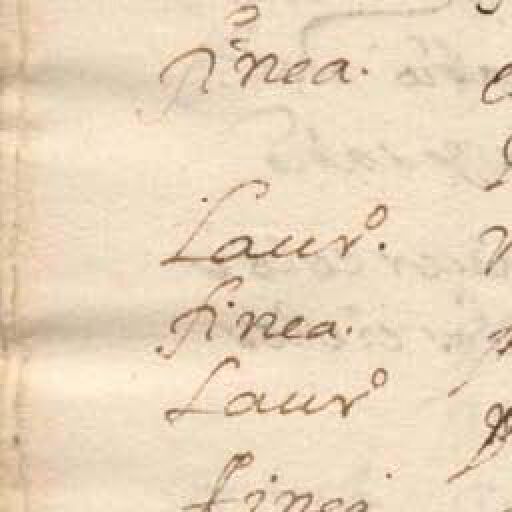 finea.
Laurº.
finea.
Laurº
finea